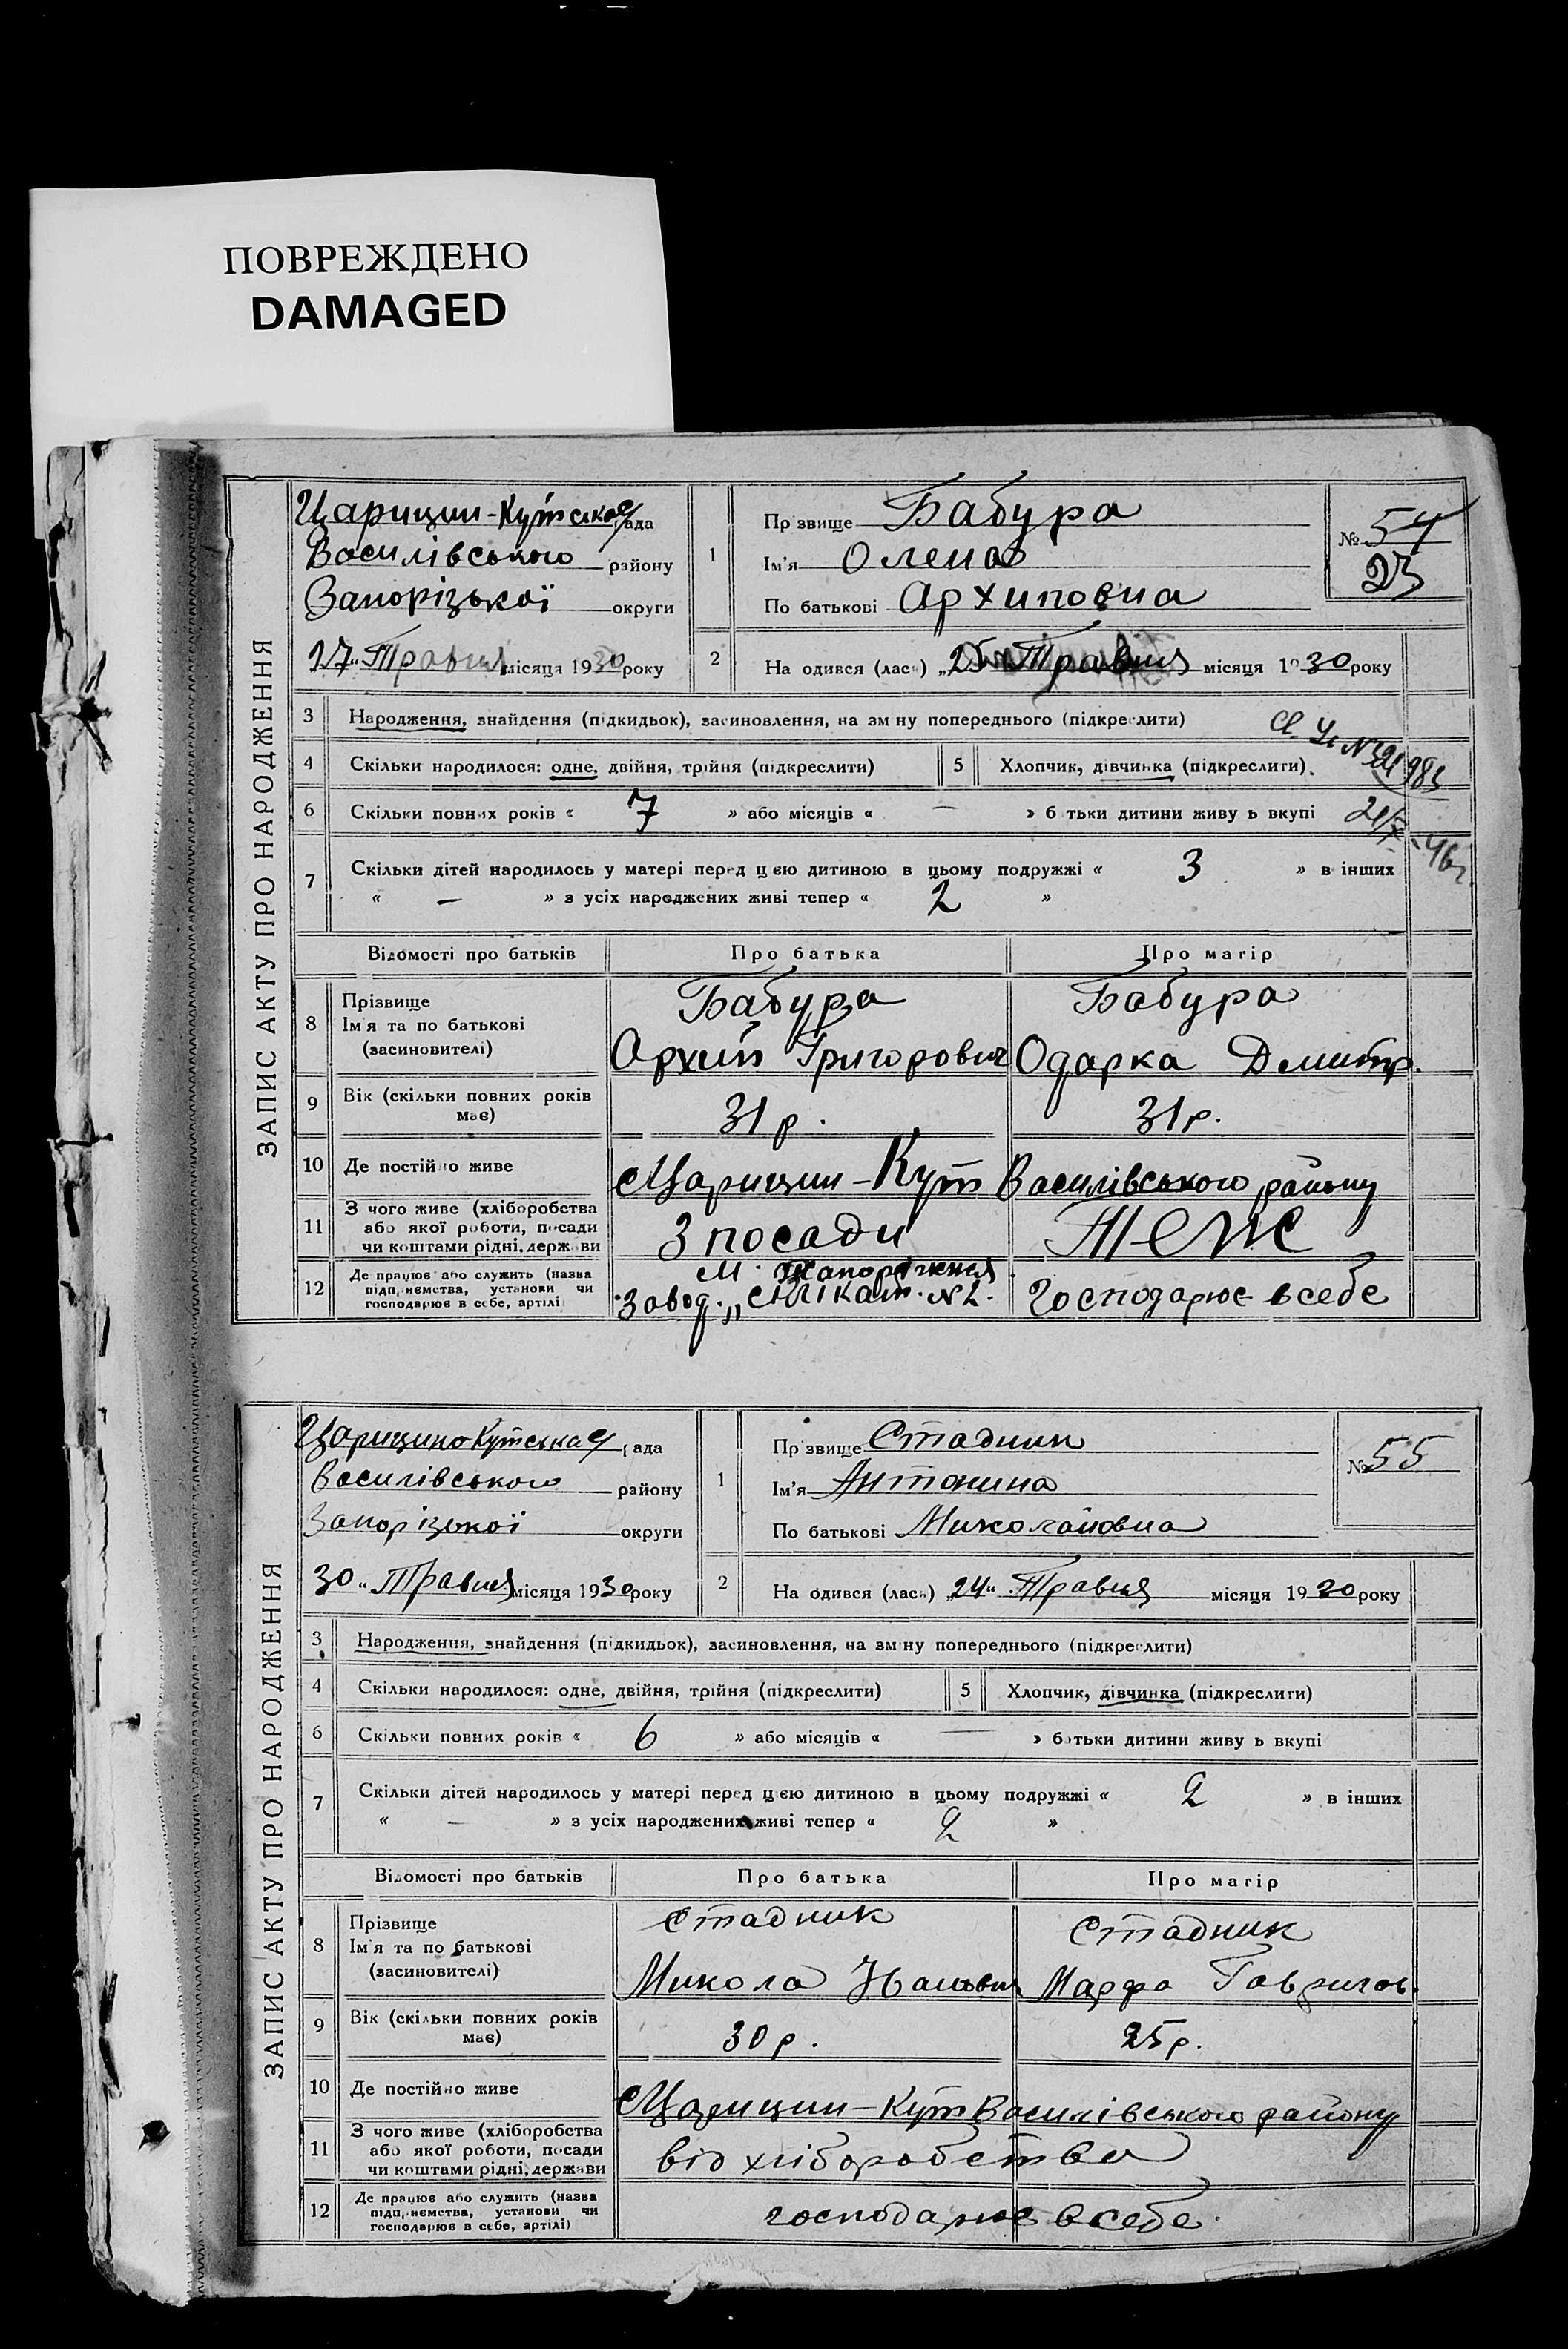 ПОВРЕЖДЕНО
DAMAGED
ЗАПИС АКТУ ПРО НАРОДЖЕННЯ
Царицин-Кутська рада
Василівського району
Запорізької округи
27 „ Травня місяця 1930 року
1
Прізвище Бабура
Ім'я Олена
По батькові Архиповна
№ 54
23
2 На одився (лась) „25 „ Травня місяця 1930 року
3 Народження, знайдення (підкидьок), засиновлення, на зміну попереднього (підкреслити)
4 Скільки народилося: одне, двійня, трійня (підкреслити) 5 Хлопчик, дівчинка (підкреслити).
6 Скільки повних років « 7 » або місяців « — » батьки дитини живуть вкупі
7 Скільки дітей народилось у матері перед цією дитиною в цьому подружжі « 3 » в інших
« — » з усіх народжених живі тепер « 2 »
Відомості про батьків Про батька Про матір
8 Прізвище Бабура Бабура
Ім'я та по батькові Архип Григорович Одарка Дмитр.
(засиновителі)
9 Вік (скільки повних років має) 31 р. 31 р.
10 Де постійно живе Царицин-Кут Василівського району
11 З чого живе (хліборобства або якої роботи, посади чи коштами рідні, держави З посади Теж
12 Де працює або служить (назва підприємства, установи чи господарює в себе, артілі) м. Запоріжжя
Завод. „Силікат. №2. Господарює в себе
ЗАПИС АКТУ ПРО НАРОДЖЕННЯ
ЦарициноКутська рада
Василівського району
Запорізької округи
30 „ Травня місяця 1930 року
1
Прізвище Стадник
Ім'я Антонина
По батькові Миколаївна
№ 55
2 На одився (лась) „24 „ Травня місяця 1930 року
3 Народження, знайдення (підкидьок), засиновлення, на зміну попереднього (підкреслити)
4 Скільки народилося: одне, двійня, трійня (підкреслити) 5 Хлопчик, дівчинка (підкреслити)
6 Скільки повних років « 6 » або місяців « — » батьки дитини живуть вкупі
7 Скільки дітей народилось у матері перед цією дитиною в цьому подружжі « 2 » в інших
« — » з усіх народжених живі тепер « 2 »
Відомості про батьків Про батька Про матір
8 Прізвище Стадник Стадник
Ім'я та по батькові Микола Іванович Марфа Гаврилов.
(засиновителі)
9 Вік (скільки повних років має) 30 р. 25 р.
10 Де постійно живе Царицин-Кут Василівського району
11 З чого живе (хліборобства або якої роботи, посади чи коштами рідні, держави від хліборобства
12 Де працює або служить (назва підприємства, установи чи господарює в себе, артілі) господарює в себе.